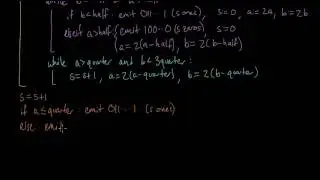 if b<half: emit 011⋯1 (s ones), s=0, a=2a, b=2b
else if a>half: emit 100⋯0 (s zeros), s=0
a=2(a-half), b=2(b-half)
while a>quarter and b<3quarter:
s=s+1, a=2(a-quarter), b=2(b-quarter)
s=s+1
if a≤quarter: emit 011⋯1 (s ones)
else: emit